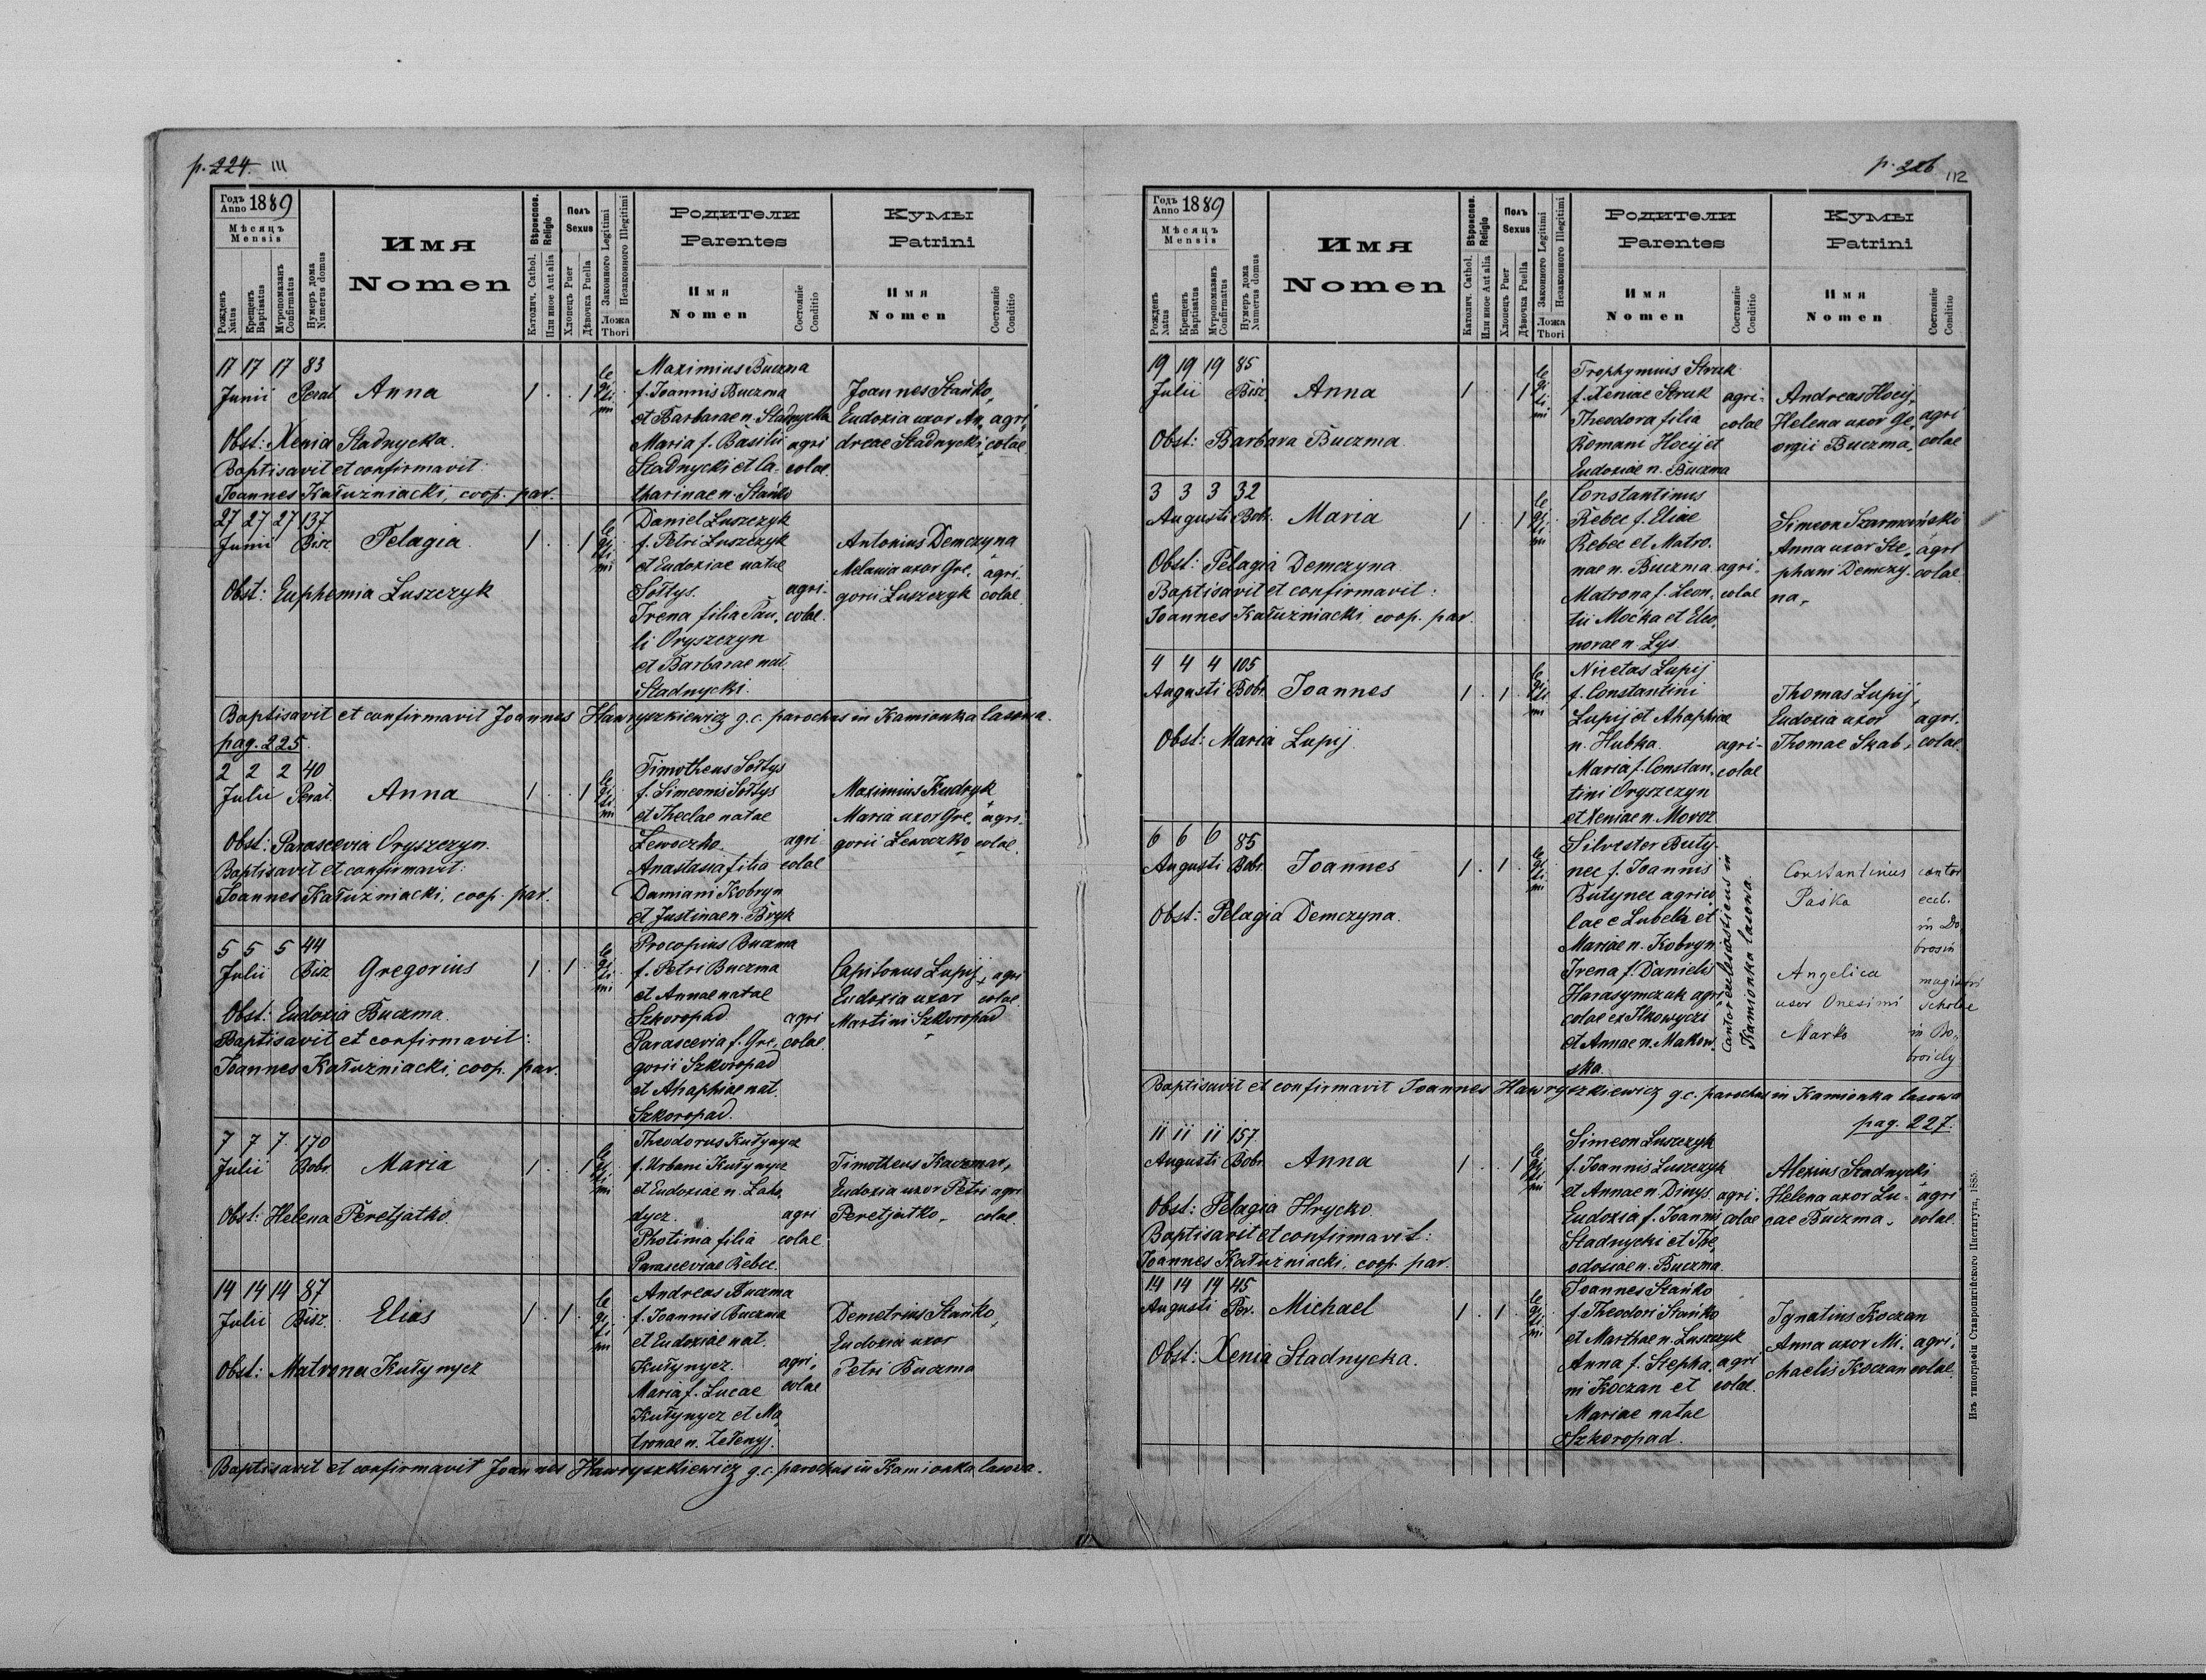 p. 224. 111
Годъ Anno 1889
Мѣсяцъ Mensis
Рожденъ Natus
Крещенъ Baptisatus
Мѵропомазанъ Confirmatus
Нумеръ дома Numerus domus
Имя Nomen
Вѣроиспов. Religio
Католич. Cathol.
Или иное Aut alia
Полъ Sexus
Хлопецъ Puer
Дѣвочка Puella
Законного Legitimi
Незаконного Illegitimi
Ложа Thori
Родители Parentes
Имя Nomen
Состояніе Conditio
Кумы Patrini
Имя Nomen
Состояніе Conditio
17 17 17 83
Junii Perat. Anna 1 . . 1 legitimi
Maximius Buczma
f. Joannis Buczma
et Barbarae n. Stadnycka
Maria f. Basilii agri
Stadnycki et Ca- colae
tharinae n. Stańko
Joannes Stańko,
Eudoxia uxor An- agri
dreae Stadnycki colae
Obst: Xenia Stadnycka.
Baptisavit et confirmavit:
Joannes Kałużniacki, coop. par.
27 27 27 137
Junii Bisz. Pelagia 1 . . 1 legitimi
Daniel Łuszczyk
f. Petri Łuszczyk
et Eudoxiae natae
Sołtys. agri-
Irena filia Pau- colae.
li Oryszczyn
et Barbarae nat.
Stadnycki.
Antonius Demczyna
Melania uxor Gre- agri-
gorii Łuszczyk colae
Obst: Euphemia Łuszczyk
Baptisavit et confirmavit Joannes Hawryszkiewicz g.c. parochus in Kamionka lasowa.
pag. 225.
2 2 2 40
Julii Perat. Anna 1 . . 1 legitimi
Timotheus Sołtys
f. Simeonis Sołtys
et Theclae natae
Lewoczko. agri
Anastasia filia colae
Damiani Kobryn
et Justinae n. Bryk
Maximius Kudryk
Maria uxor Gre- agri-
gorii Lewoczko colae.
Obst: Parascevia Oryszczyn.
Baptisavit et confirmavit:
Joannes Kałużniacki, coop. par.
5 5 5 44
Julii Bisz Gregorius 1 . 1 . legitimi
Procopius Buczma
f. Petri Buczma
et Annae natae
Szkoropad agri
Parascevia f. Gre- colae.
gorii Szkoropad
et Ahaphiae nat.
Szkoropad.
Capitonus Łupij, agri
Eudoxia uxor colae.
Martini Szkoropad
Obst: Eudoxia Buczma.
Baptisavit et confirmavit:
Joannes Kałużniacki, coop. par.
7 7 7. 170
Julii Bobr. Maria 1 . . 1 legitimi
Theodorus Kułynycz
f. Urbani Kułynycz
et Eudoxiae n. Laho
dycz. agri
Photinia filia colae.
Parasceviae Rebec.
Timotheus Kaczmar,
Eudoxia uxor Petri agri
Peretjatko, colae.
Obst: Helena Peretjatko.
14 14 14 87
Julii Bisz. Elias 1 . 1 . legitimi
Andreas Buczma
f. Joannis Buczma
et Eudoxiae nat.
Kułynycz. agri-
Maria f. Lucae colae
Kułynycz et Ma
tronae n. Zełenyj.
Demetrius Stańko,
Eudoxia uxor
Petri Buczma
Obst: Matrona Kułynycz
Baptisavit et confirmavit Joannes Hawryszkiewicz g.c. parochus in Kamionka lasova.
p. 226 112
Годъ Anno 1889
Мѣсяцъ Mensis
Рожденъ Natus
Крещенъ Baptisatus
Мѵропомазанъ Confirmatus
Нумеръ дома Numerus domus
Имя Nomen
Вѣроиспов. Religio
Католич. Cathol.
Или иное Aut alia
Полъ Sexus
Хлопецъ Puer
Дѣвочка Puella
Законного Legitimi
Незаконного Illegitimi
Ложа Thori
Родители Parentes
Имя Nomen
Состояніе Conditio
Кумы Patrini
Имя Nomen
Состояніе Conditio
19 19 19 85
Julii Bisz. Anna 1 . . 1 legitimi
Trophymius Struk
f. Xeniae Struk agri-
Theodora filia colae
Romani Hocij et
Eudoxiae n. Buczma
Andreas Hocij,
Helena uxor Ge- agri
orgii Buczma, colae
Obst: Barbara Buczma.
3 3 3 32
Augusti Bobr. Maria 1 . . 1 legitimi
Constantinus
Rebec f. Eliae
Rebec et Matro-
nae n. Buczma agri-
Matrona f. Leon- colae
tii Moćka et Eleo
norae n. Lys.
Simeon Szarmański
Anna uxor Ste- agri
phani Demczy- colae.
na,
Obst: Pelagia Demczyna.
Baptisavit et confirmavit:
Joannes Kałużniacki, coop. par.
4 4 4 105
Augusti Bobr. Joannes 1 . 1 . legitimi
Nicetas Łupij
f. Constantini
Łupij et Ahaphiae
n. Hubka. agri-
Maria f. Constan- colae
tini Oryszczyn
et Xeniae n. Moroz
Thomas Łupij,
Eudoxia uxor agri-
Thomae Szab, colae.
Obst: Maria Łupij.
6 6 6 85
Augusti Bobr. Joannes 1 . 1 . legitimi
Silvester Buty-
nec f. Joannis
Butynec agrico
lae e Lubela et
Mariae n. Kobryn
Irena f. Danielis
Harasymczuk agri
colae ex Ilkowyczi
et Annae n. Makow
ska.
Cantor eculesiasticus in Kamionka lasowa.
Constantinius cantor
Paśka eccl.
in Do
brosin
Angelica magistri
uxor Onesimi scholae
Marko in Do-
broidy
Obst: Pelagia Demczyna.
Baptisavit et confirmavit Joannes Hawryszkiewicz g.c. parochus in Kamionka lasowa
pag. 227.
11 11 11 157.
Augusti Bobr. Anna 1 . . 1 legitimi
Simeon Łuszczyk
f. Joannis Łuszczyk
et Annae n. Dinys. agri-
Eudoxia f. Joannis colae
Stadnycki et The
odosiae n. Buczma.
Alexius Stadnycki
Helena uxor Lu- agri
cae Buczma, colae.
Obst: Pelagia Hrycko.
Baptisavit et confirmavit:
Joannes Kałużniacki, coop. par.
14 14 14 45
Augusti Per. Michael 1 . 1 . legitimi
Joannes Stańko
f. Theodori Stańko
et Marthae n. Łuszczyk
Anna f. Stepha- agri
ni Koczan et colae.
Mariae natae
Szkoropad.
Ignatius Koczan
Anna uxor Mi- agri-
chaelis Koczan colae.
Obst: Xenia Stadnycka.
Изъ типографіи Ставропигійского Института, 1885.